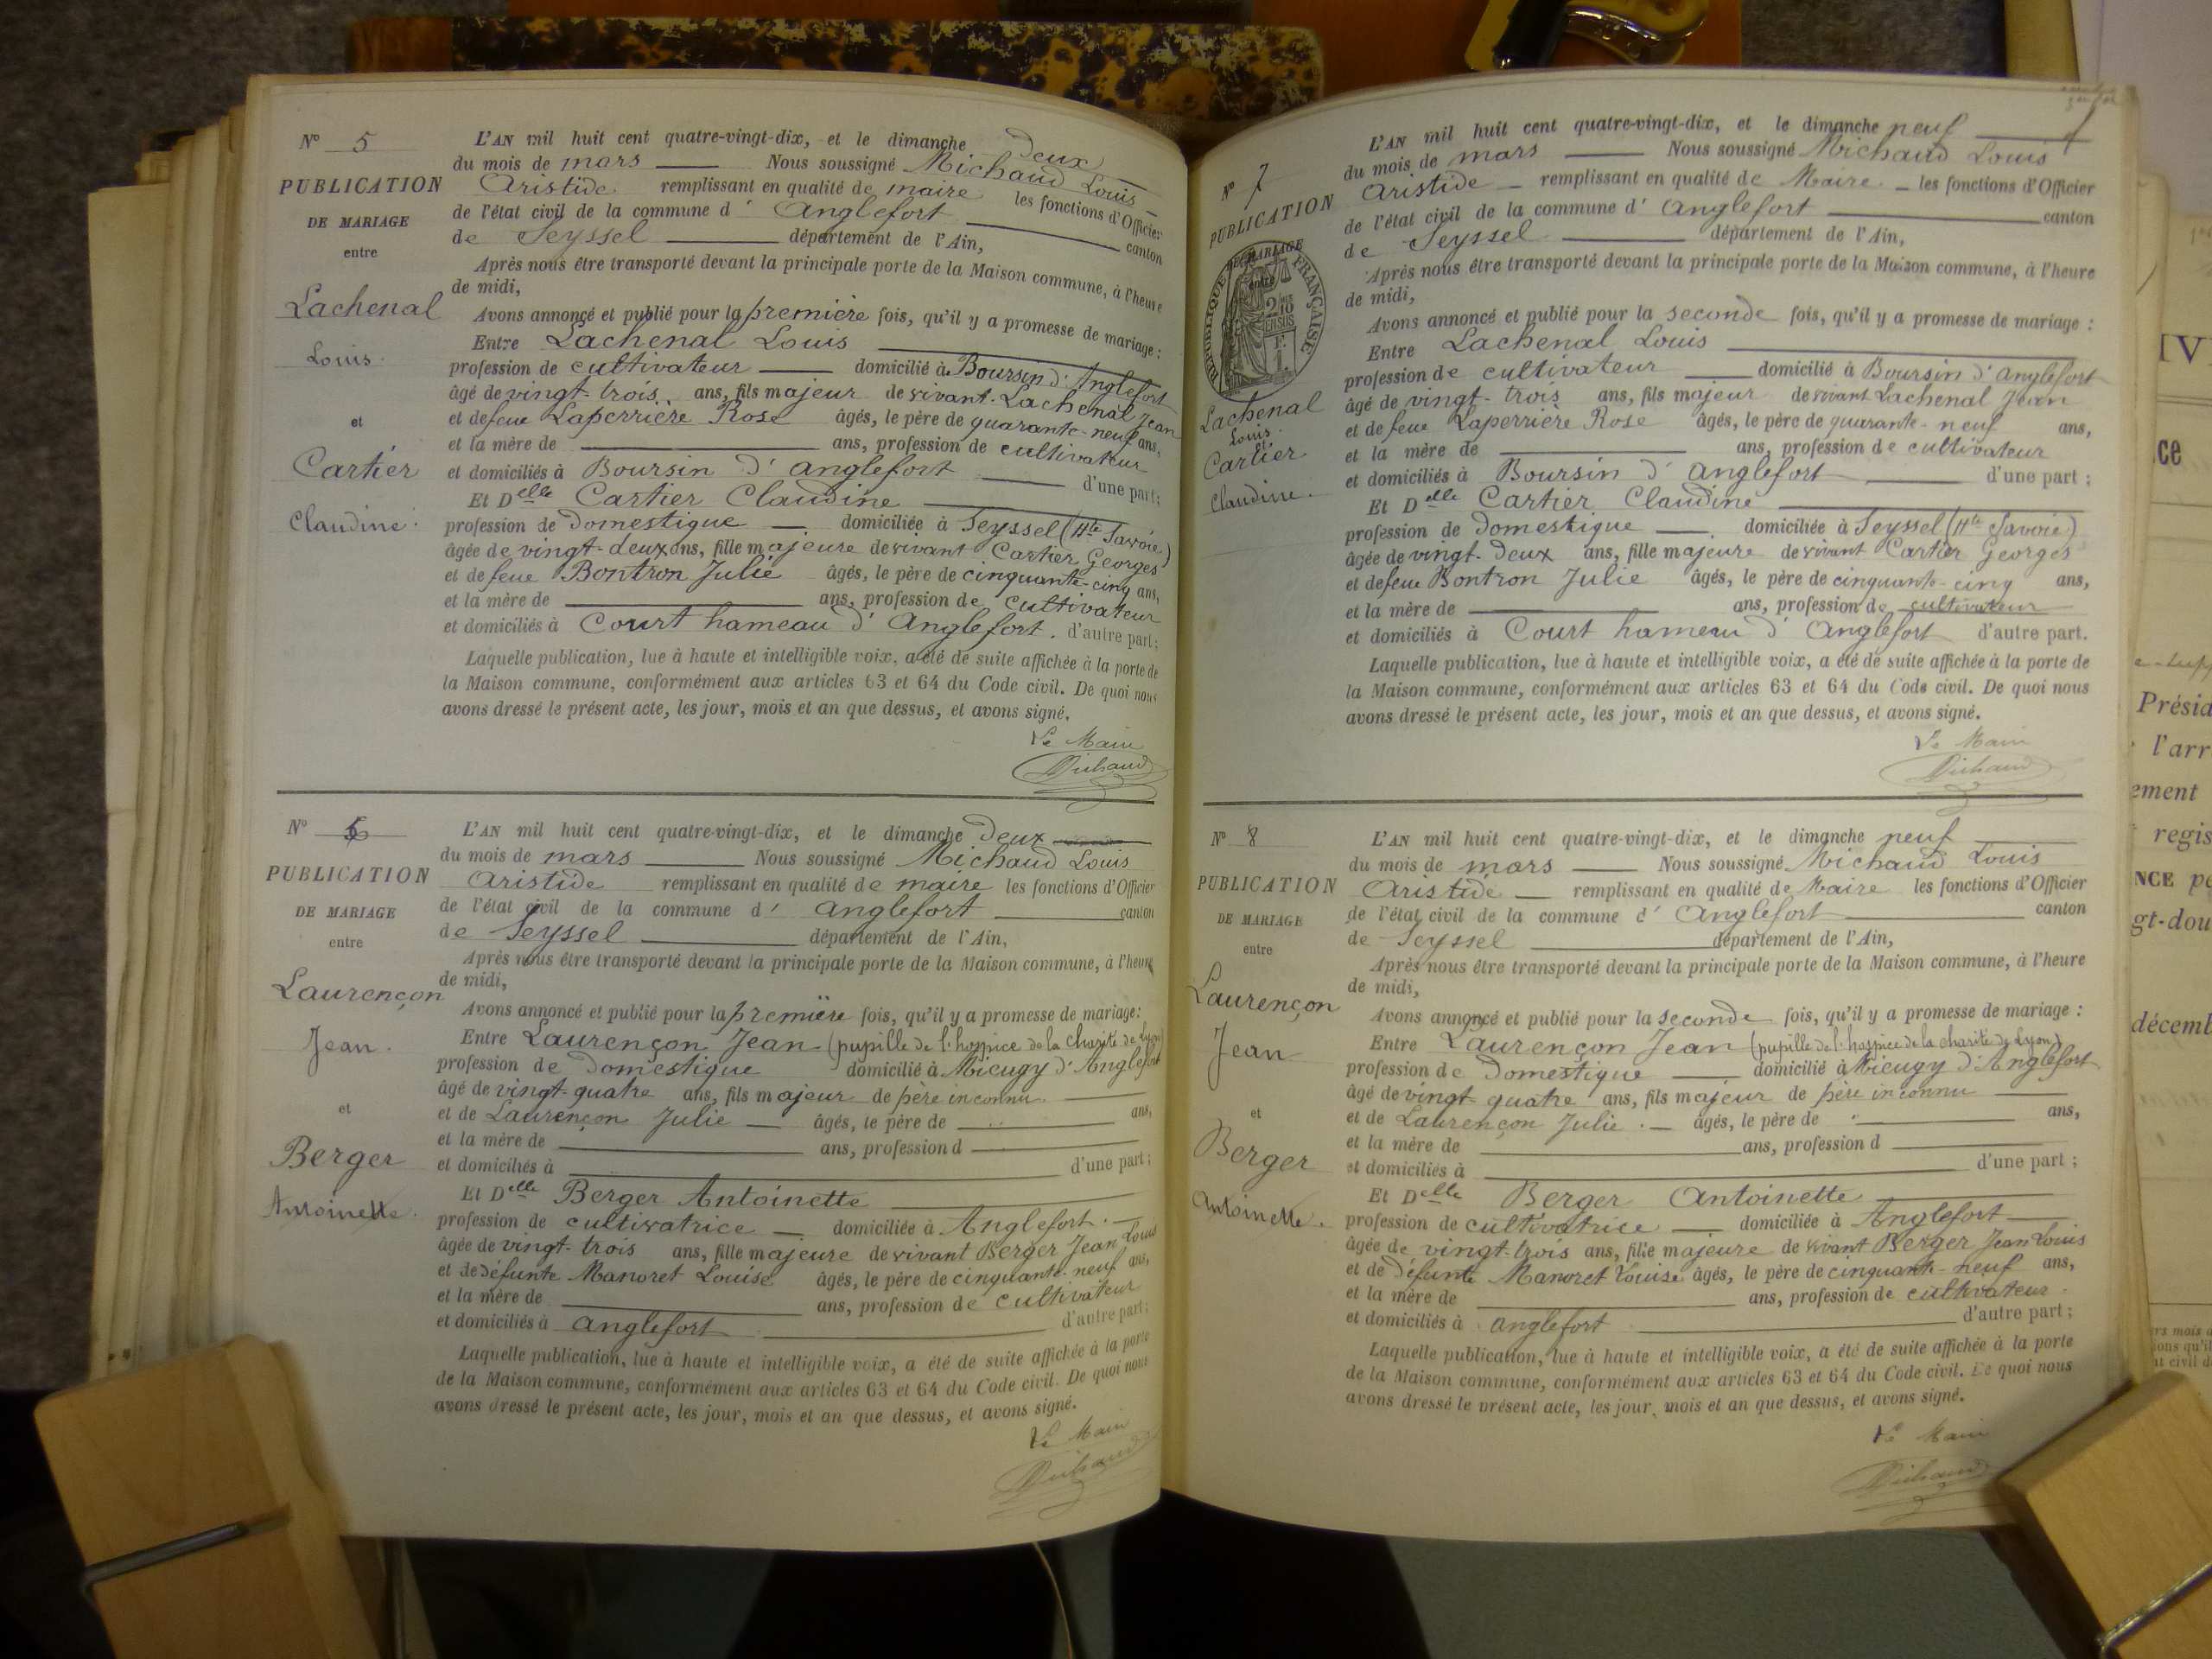 N° 5
PUBLICATION
DE MARIAGE
entre
Lachenal
Louis
et
Cartier
Claudine
L'AN mil huit cent quatre-vingt-dix, et le dimanche Deux
du mois de mars Nous soussigné Michaud Louis
Aristide remplissant en qualité de maire les fonctions d'Officier
de l'état civil de la commune d' Anglefort canton
de Seyssel département de l'Ain,
Après nous être transporté devant la principale porte de la Maison commune, à l'heure
de midi,
Avons annoncé et publié pour la première fois, qu'il y a promesse de mariage :
Entre Lachenal Louis
profession de cultivateur domicilié à Boursin d'Anglefort
âgé de vingt-trois ans, fils majeur de vivant Lachenal Jean
et de feue Laperrière Rose âgés, le père de quarante-neuf ans,
et la mère de ans, profession de cultivateur
et domiciliés à Boursin d'Anglefort d'une part ;
Et Delle Cartier Claudine
profession de Domestique domiciliée à Seyssel (Hte Savoie)
âgée de vingt-deux ans, fille majeure de vivant Cartier Georges
et de feue Bontron Julie âgés, le père de cinquante-cinq ans,
et la mère de ans, profession de cultivateur
et domiciliés à Court hameau d'Anglefort. d'autre part ;
Laquelle publication, lue à haute et intelligible voix, a été de suite affichée à la porte de
la Maison commune, conformément aux articles 63 et 64 du Code civil. De quoi nous
avons dressé le présent acte, les jour, mois et an que dessus, et avons signé.
Le Maire
Michaud
N° 6
PUBLICATION
DE MARIAGE
entre
Laurençon
Jean
et
Berger
Antoinette
L'AN mil huit cent quatre-vingt-dix, et le dimanche Deux
du mois de mars Nous soussigné Michaud Louis
Aristide remplissant en qualité de maire les fonctions d'Officier
de l'état civil de la commune d' Anglefort canton
de Seyssel département de l'Ain,
Après nous être transporté devant la principale porte de la Maison commune, à l'heure
de midi,
Avons annoncé et publié pour la première fois, qu'il y a promesse de mariage :
Entre Laurençon Jean (pupille de l'hospice de la charité de Lyon)
profession de Domestique domicilié à Mieugy d'Anglefort
âgé de vingt-quatre ans, fils majeur de père inconnu
et de Laurençon Julie âgés, le père de ans,
et la mère de ans, profession d
et domiciliés à d'une part ;
Et Delle Berger Antoinette
profession de cultivatrice domiciliée à Anglefort
âgée de vingt-trois ans, fille majeure de vivant Berger Jean Louis
et de défunte Manoret Louise âgés, le père de cinquante-neuf ans,
et la mère de ans, profession de cultivateur
et domiciliés à Anglefort d'autre part ;
Laquelle publication, lue à haute et intelligible voix, a été de suite affichée à la porte
de la Maison commune, conformément aux articles 63 et 64 du Code civil. De quoi nous
avons dressé le présent acte, les jour, mois et an que dessus, et avons signé.
Le Maire
Michaud
N° 7
PUBLICATION
DE MARIAGE
entre
RÉPUBLIQUE FRANÇAISE
Lachenal
Louis
et
Cartier
Claudine
L'AN mil huit cent quatre-vingt-dix, et le dimanche neuf
du mois de mars Nous soussigné Michaud Louis
Aristide remplissant en qualité de Maire les fonctions d'Officier
de l'état civil de la commune d' Anglefort canton
de Seyssel département de l'Ain,
Après nous être transporté devant la principale porte de la Maison commune, à l'heure
de midi,
Avons annoncé et publié pour la seconde fois, qu'il y a promesse de mariage :
Entre Lachenal Louis
profession de cultivateur domicilié à Boursin d'Anglefort
âgé de vingt-trois ans, fils majeur de vivant Lachenal Jean
et de feue Laperrière Rose âgés, le père de quarante-neuf ans,
et la mère de ans, profession de cultivateur
et domiciliés à Boursin d'Anglefort d'une part ;
Et Delle Cartier Claudine
profession de Domestique domiciliée à Seyssel (Hte Savoie)
âgée de vingt-deux ans, fille majeure de vivant Cartier Georges
et de feue Bontron Julie âgés, le père de cinquante-cinq ans,
et la mère de ans, profession de cultivateur
et domiciliés à Court hameau d'Anglefort d'autre part.
Laquelle publication, lue à haute et intelligible voix, a été de suite affichée à la porte de
la Maison commune, conformément aux articles 63 et 64 du Code civil. De quoi nous
avons dressé le présent acte, les jour, mois et an que dessus, et avons signé.
Le Maire
Michaud
N° 8
PUBLICATION
DE MARIAGE
entre
Laurençon
Jean
et
Berger
Antoinette
L'AN mil huit cent quatre-vingt-dix, et le dimanche neuf
du mois de mars Nous soussigné Michaud Louis
Aristide remplissant en qualité de Maire les fonctions d'Officier
de l'état civil de la commune d' Anglefort canton
de Seyssel département de l'Ain,
Après nous être transporté devant la principale porte de la Maison commune, à l'heure
de midi,
Avons annoncé et publié pour la seconde fois, qu'il y a promesse de mariage :
Entre Laurençon Jean (pupille de l'hospice de la charité de Lyon)
profession de Domestique domicilié à Mieugy d'Anglefort
âgé de vingt-quatre ans, fils majeur de père inconnu
et de Laurençon Julie âgés, le père de ans,
et la mère de ans, profession d
et domiciliés à d'une part ;
Et Delle Berger Antoinette
profession de cultivatrice domiciliée à Anglefort
âgée de vingt-trois ans, fille majeure de vivant Berger Jean Louis
et de défunte Manoret Louise âgés, le père de cinquante-neuf ans,
et la mère de ans, profession de cultivateur
et domiciliés à Anglefort d'autre part ;
Laquelle publication, lue à haute et intelligible voix, a été de suite affichée à la porte
de la Maison commune, conformément aux articles 63 et 64 du Code civil. De quoi nous
avons dressé le présent acte, les jour, mois et an que dessus, et avons signé.
Le Maire
Michaud
IV
ce
Présid
l'arr
ement
regis
NCE pe
gt-dou
décemb